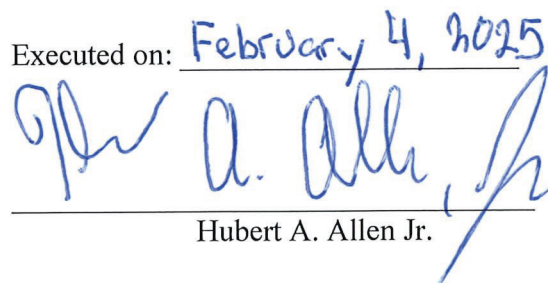 Executed on: February 4, 2025
A. Allen, Jr
Hubert A. Allen Jr.